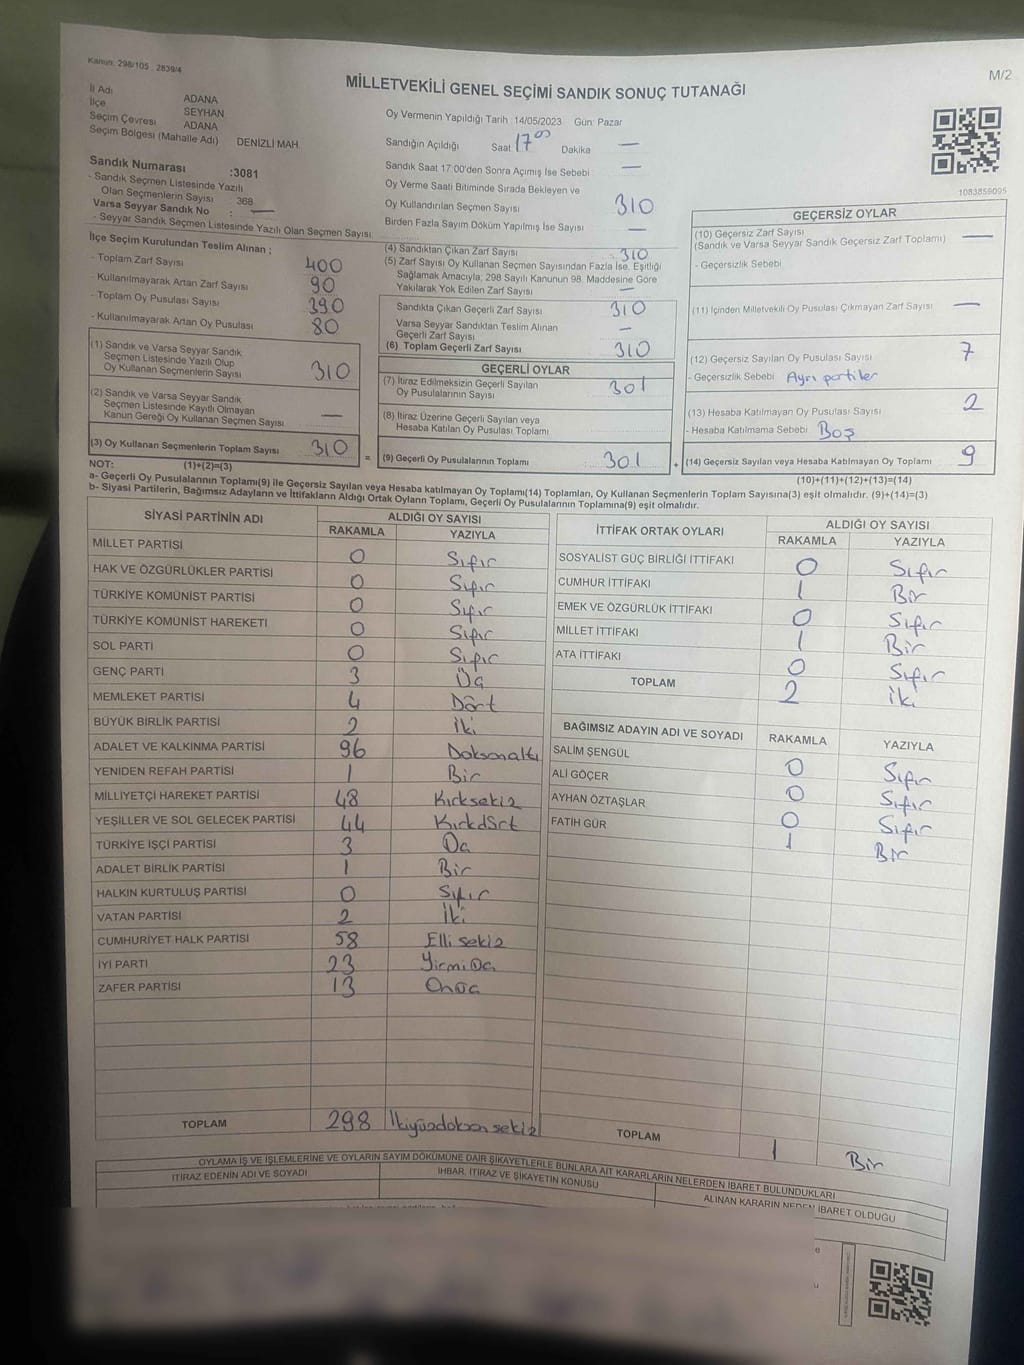 Kanun: 298/105 , 2839/4
M/2
MİLLETVEKİLİ GENEL SEÇİMİ SANDIK SONUÇ TUTANAĞI
İl Adı ADANA
İlçe SEYHAN
Seçim Çevresi ADANA
Seçim Bölgesi (Mahalle Adı) DENİZLİ MAH.
Sandık Numarası :3081
- Sandık Seçmen Listesinde Yazılı
Olan Seçmenlerin Sayısı 368
Varsa Seyyar Sandık No : —
- Seyyar Sandık Seçmen Listesinde Yazılı Olan Seçmen Sayısı:
Oy Vermenin Yapıldığı Tarih : 14/05/2023 Gün: Pazar
Sandığın Açıldığı Saat 17 00 Dakika —
Sandık Saat 17:00'den Sonra Açımış İse Sebebi : —
Oy Verme Saati Bitiminde Sırada Bekleyen ve
Oy Kullandırılan Seçmen Sayısı 310
Birden Fazla Sayım Döküm Yapılmış İse Sayısı : —
1083859095
İlçe Seçim Kurulundan Teslim Alınan ;
- Toplam Zarf Sayısı 400
- Kullanılmayarak Artan Zarf Sayısı 90
- Toplam Oy Pusulası Sayısı 390
- Kullanılmayarak Artan Oy Pusulası 80
(1) Sandık ve Varsa Seyyar Sandık
Seçmen Listesinde Yazılı Olup
Oy Kullanan Seçmenlerin Sayısı 310
(2) Sandık ve Varsa Seyyar Sandık
Seçmen Listesinde Kayıtlı Olmayan
Kanun Gereği Oy Kullanan Seçmen Sayısı —
(3) Oy Kullanan Seçmenlerin Toplam Sayısı 310 =
(4) Sandıktan Çıkan Zarf Sayısı : 310
(5) Zarf Sayısı Oy Kullanan Seçmen Sayısından Fazla İse, Eşitliği
Sağlamak Amacıyla; 298 Sayılı Kanunun 98. Maddesine Göre
Yakılarak Yok Edilen Zarf Sayısı —
Sandıkta Çıkan Geçerli Zarf Sayısı 310
Varsa Seyyar Sandıktan Teslim Alınan
Geçerli Zarf Sayısı —
(6) Toplam Geçerli Zarf Sayısı 310
GEÇERLİ OYLAR
(7) İtiraz Edilmeksizin Geçerli Sayılan
Oy Pusulalarının Sayısı 301
(8) İtiraz Üzerine Geçerli Sayılan veya
Hesaba Katılan Oy Pusulası Toplamı
(9) Geçerli Oy Pusulalarının Toplamı 301 +
GEÇERSİZ OYLAR
(10) Geçersiz Zarf Sayısı
(Sandık ve Varsa Seyyar Sandık Geçersiz Zarf Toplamı) —
- Geçersizlik Sebebi
(11) İçinden Milletvekili Oy Pusulası Çıkmayan Zarf Sayısı —
(12) Geçersiz Sayılan Oy Pusulası Sayısı 7
- Geçersizlik Sebebi Ayrı partiler
(13) Hesaba Katılmayan Oy Pusulası Sayısı 2
- Hesaba Katılmama Sebebi Boş
(14) Geçersiz Sayılan veya Hesaba Katılmayan Oy Toplamı 9
NOT: (1)+(2)=(3)
(10)+(11)+(12)+(13)=(14)
a- Geçerli Oy Pusulalarının Toplamı(9) ile Geçersiz Sayılan veya Hesaba katılmayan Oy Toplamı(14) Toplamları, Oy Kullanan Seçmenlerin Toplam Sayısına(3) eşit olmalıdır. (9)+(14)=(3)
b- Siyasi Partilerin, Bağımsız Adayların ve İttifakların Aldığı Ortak Oyların Toplamı, Geçerli Oy Pusulalarının Toplamına(9) eşit olmalıdır.
SİYASİ PARTİNİN ADI ALDIĞI OY SAYISI
RAKAMLA YAZIYLA
MİLLET PARTİSİ 0 Sıfır
HAK VE ÖZGÜRLÜKLER PARTİSİ 0 Sıfır
TÜRKİYE KOMÜNİST PARTİSİ 0 Sıfır
TÜRKİYE KOMÜNİST HAREKETİ 0 Sıfır
SOL PARTİ 0 Sıfır
GENÇ PARTİ 3 Üç
MEMLEKET PARTİSİ 4 Dört
BÜYÜK BİRLİK PARTİSİ 2 İki
ADALET VE KALKINMA PARTİSİ 96 Doksanaltı
YENİDEN REFAH PARTİSİ 1 Bir
MİLLİYETÇİ HAREKET PARTİSİ 48 Kırksekiz
YEŞİLLER VE SOL GELECEK PARTİSİ 44 Kırkdört
TÜRKİYE İŞÇİ PARTİSİ 3 Üç
ADALET BİRLİK PARTİSİ 1 Bir
HALKIN KURTULUŞ PARTİSİ 0 Sıfır
VATAN PARTİSİ 2 İki
CUMHURİYET HALK PARTİSİ 58 Elli sekiz
İYİ PARTİ 23 Yirmi Üç
ZAFER PARTİSİ 13 Onüç
TOPLAM 298 İkiyüzdoksan sekiz
İTTİFAK ORTAK OYLARI ALDIĞI OY SAYISI
RAKAMLA YAZIYLA
SOSYALİST GÜÇ BİRLİĞİ İTTİFAKI 0 Sıfır
CUMHUR İTTİFAKI 1 Bir
EMEK VE ÖZGÜRLÜK İTTİFAKI 0 Sıfır
MİLLET İTTİFAKI 1 Bir
ATA İTTİFAKI 0 Sıfır
TOPLAM 2 iki
BAĞIMSIZ ADAYIN ADI VE SOYADI RAKAMLA YAZIYLA
SALİM ŞENGÜL 0 Sıfır
ALİ GÖÇER 0 Sıfır
AYHAN ÖZTAŞLAR 0 Sıfır
FATİH GÜR 1 Bir
TOPLAM 1 Bir
OYLAMA İŞ VE İŞLEMLERİNE VE OYLARIN SAYIM DÖKÜMÜNE DAİR ŞİKAYETLERLE BUNLARA AİT KARARLARIN NELERDEN İBARET BULUNDUKLARI
İTİRAZ EDENİN ADI VE SOYADI
İHBAR, İTİRAZ VE ŞİKAYETİN KONUSU
ALINAN KARARIN NEDEN İBARET OLDUĞU